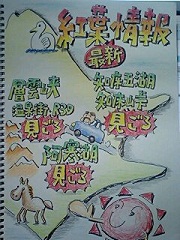 紅葉情報
最新
層雲峡
温泉街
見ごろ
知床五湖
知床峠
見ごろ
阿寒湖
見ごろ